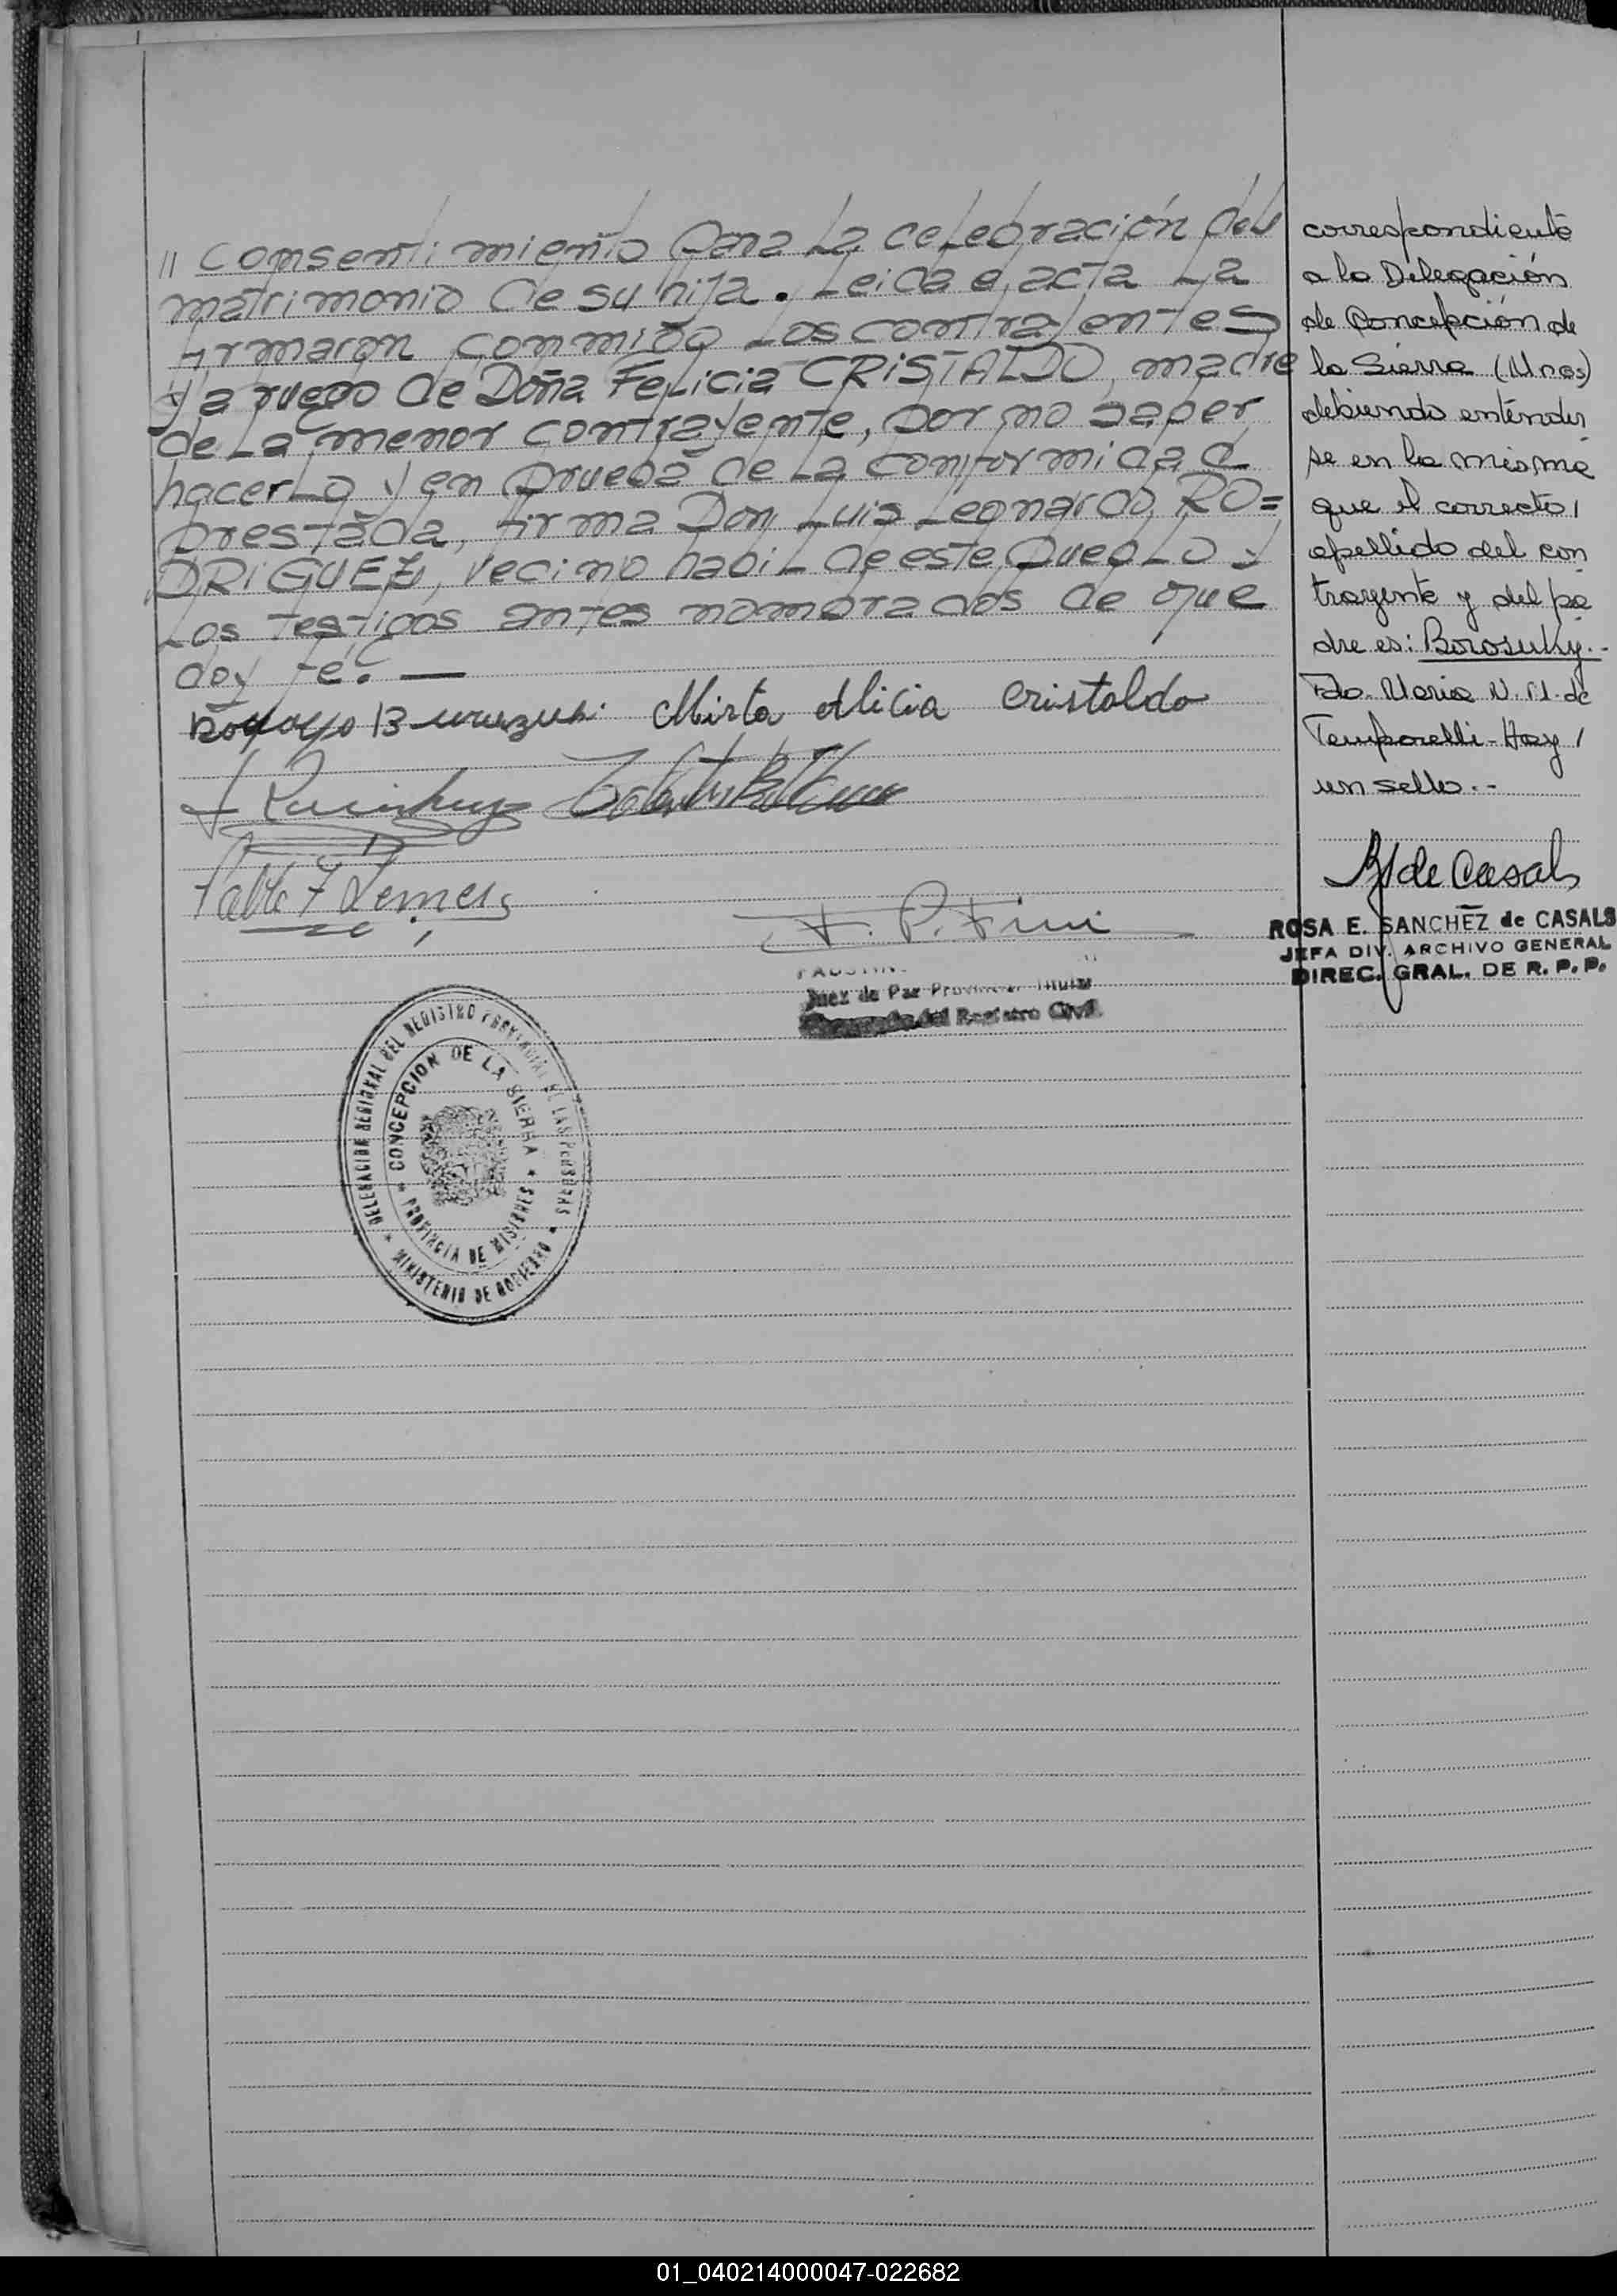 // consentimiento para la celebración del
matrimonio de su hija. Leida el acta la
firmaron conmigo los contrayentes
y a ruego de Doña Felicia CRISTALDO, madre
de la menor contrayente, por no saber
hacerlo y en prueba de la conformidad
prestada, firma Don Luis Leonardo RO=
DRIGUEZ, vecino habil de este pueblo y
los testigos antes nombrados de que
doy fé. —
Mirta Alicia Cristaldo
F. P. Fini
Juez de Paz Provincial Titular
Encargado del Registro Civil
DELEGACION REGIONAL DEL REGISTRO PROVINCIAL DE LAS PERSONAS
* MINISTERIO DE GOBIERNO *
CONCEPCION DE LA SIERRA
* PROVINCIA DE MISIONES *
correspondiente
a la Delegación
de Concepción de
la Sierra (Mnes)
debiendo entender
se en la misma
que el correcto/
apellido del con
trayente y del pa
dre es: Borosuky.-
Fdo. Maria N. M. de
Temporelli - Hay /
un sello.-
RS de Casals
ROSA E. SANCHEZ de CASALS
JEFA DIV. ARCHIVO GENERAL
DIREC. GRAL. DE R. P. P.
01_040214000047-022682